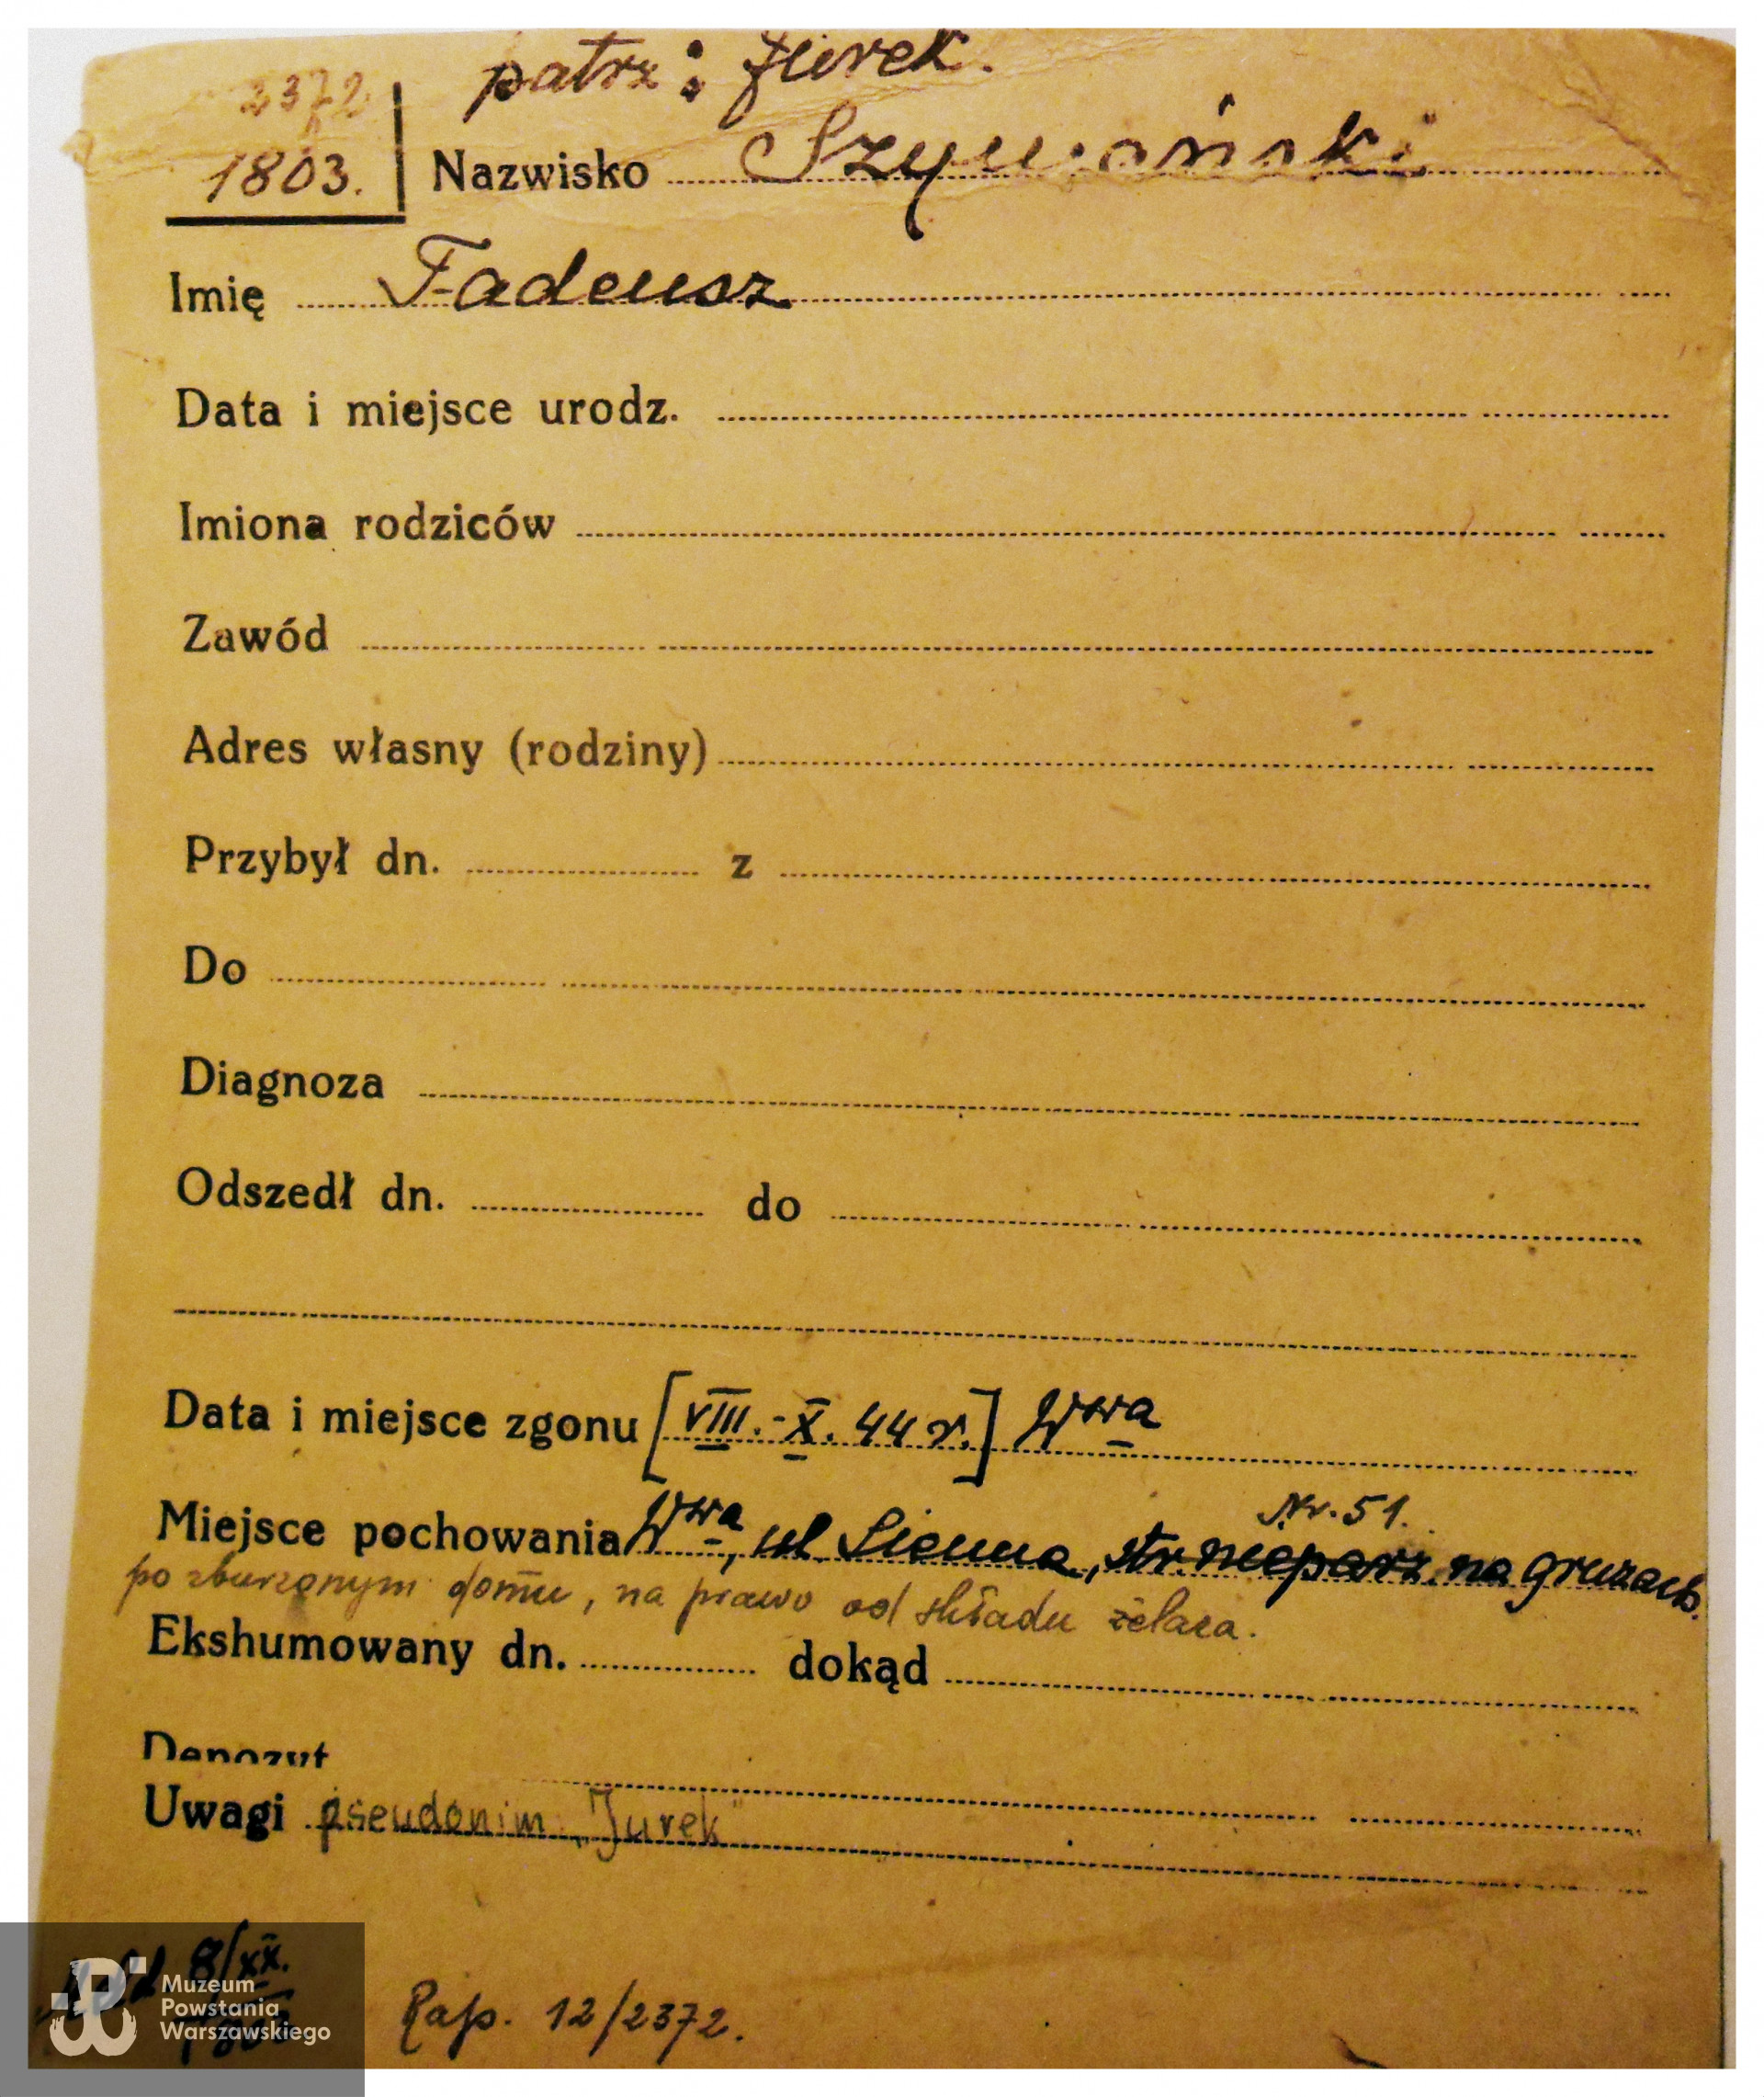 patrz: Jurek.
2372
1803.
Nazwisko Szymański
Imię Tadeusz
Data i miejsce urodz.
Imiona rodziców
Zawód
Adres własny (rodziny)
Przybył dn. z
Do
Diagnoza
Odszedł dn. do
Data i miejsce zgonu [VIII.-X. 44 r.] Wwa
Nr. 51.
Miejsce pochowania Wwa, ul. Sienna, str. nieparz. na gruzach
po zburzonym domu, na prawo od składu żelaza.
Ekshumowany dn. dokąd
Depozyt
Uwagi pseudonim „Jurek"
8/XX.
Muzeum
Powstania
Warszawskiego
Rap. 12/2372.